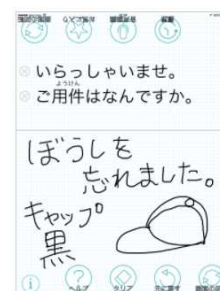 いらっしゃいませ。
ご用件はなんですか。
ぼうしを
忘れました。
キャップ
黒
ヘルプ
クリア